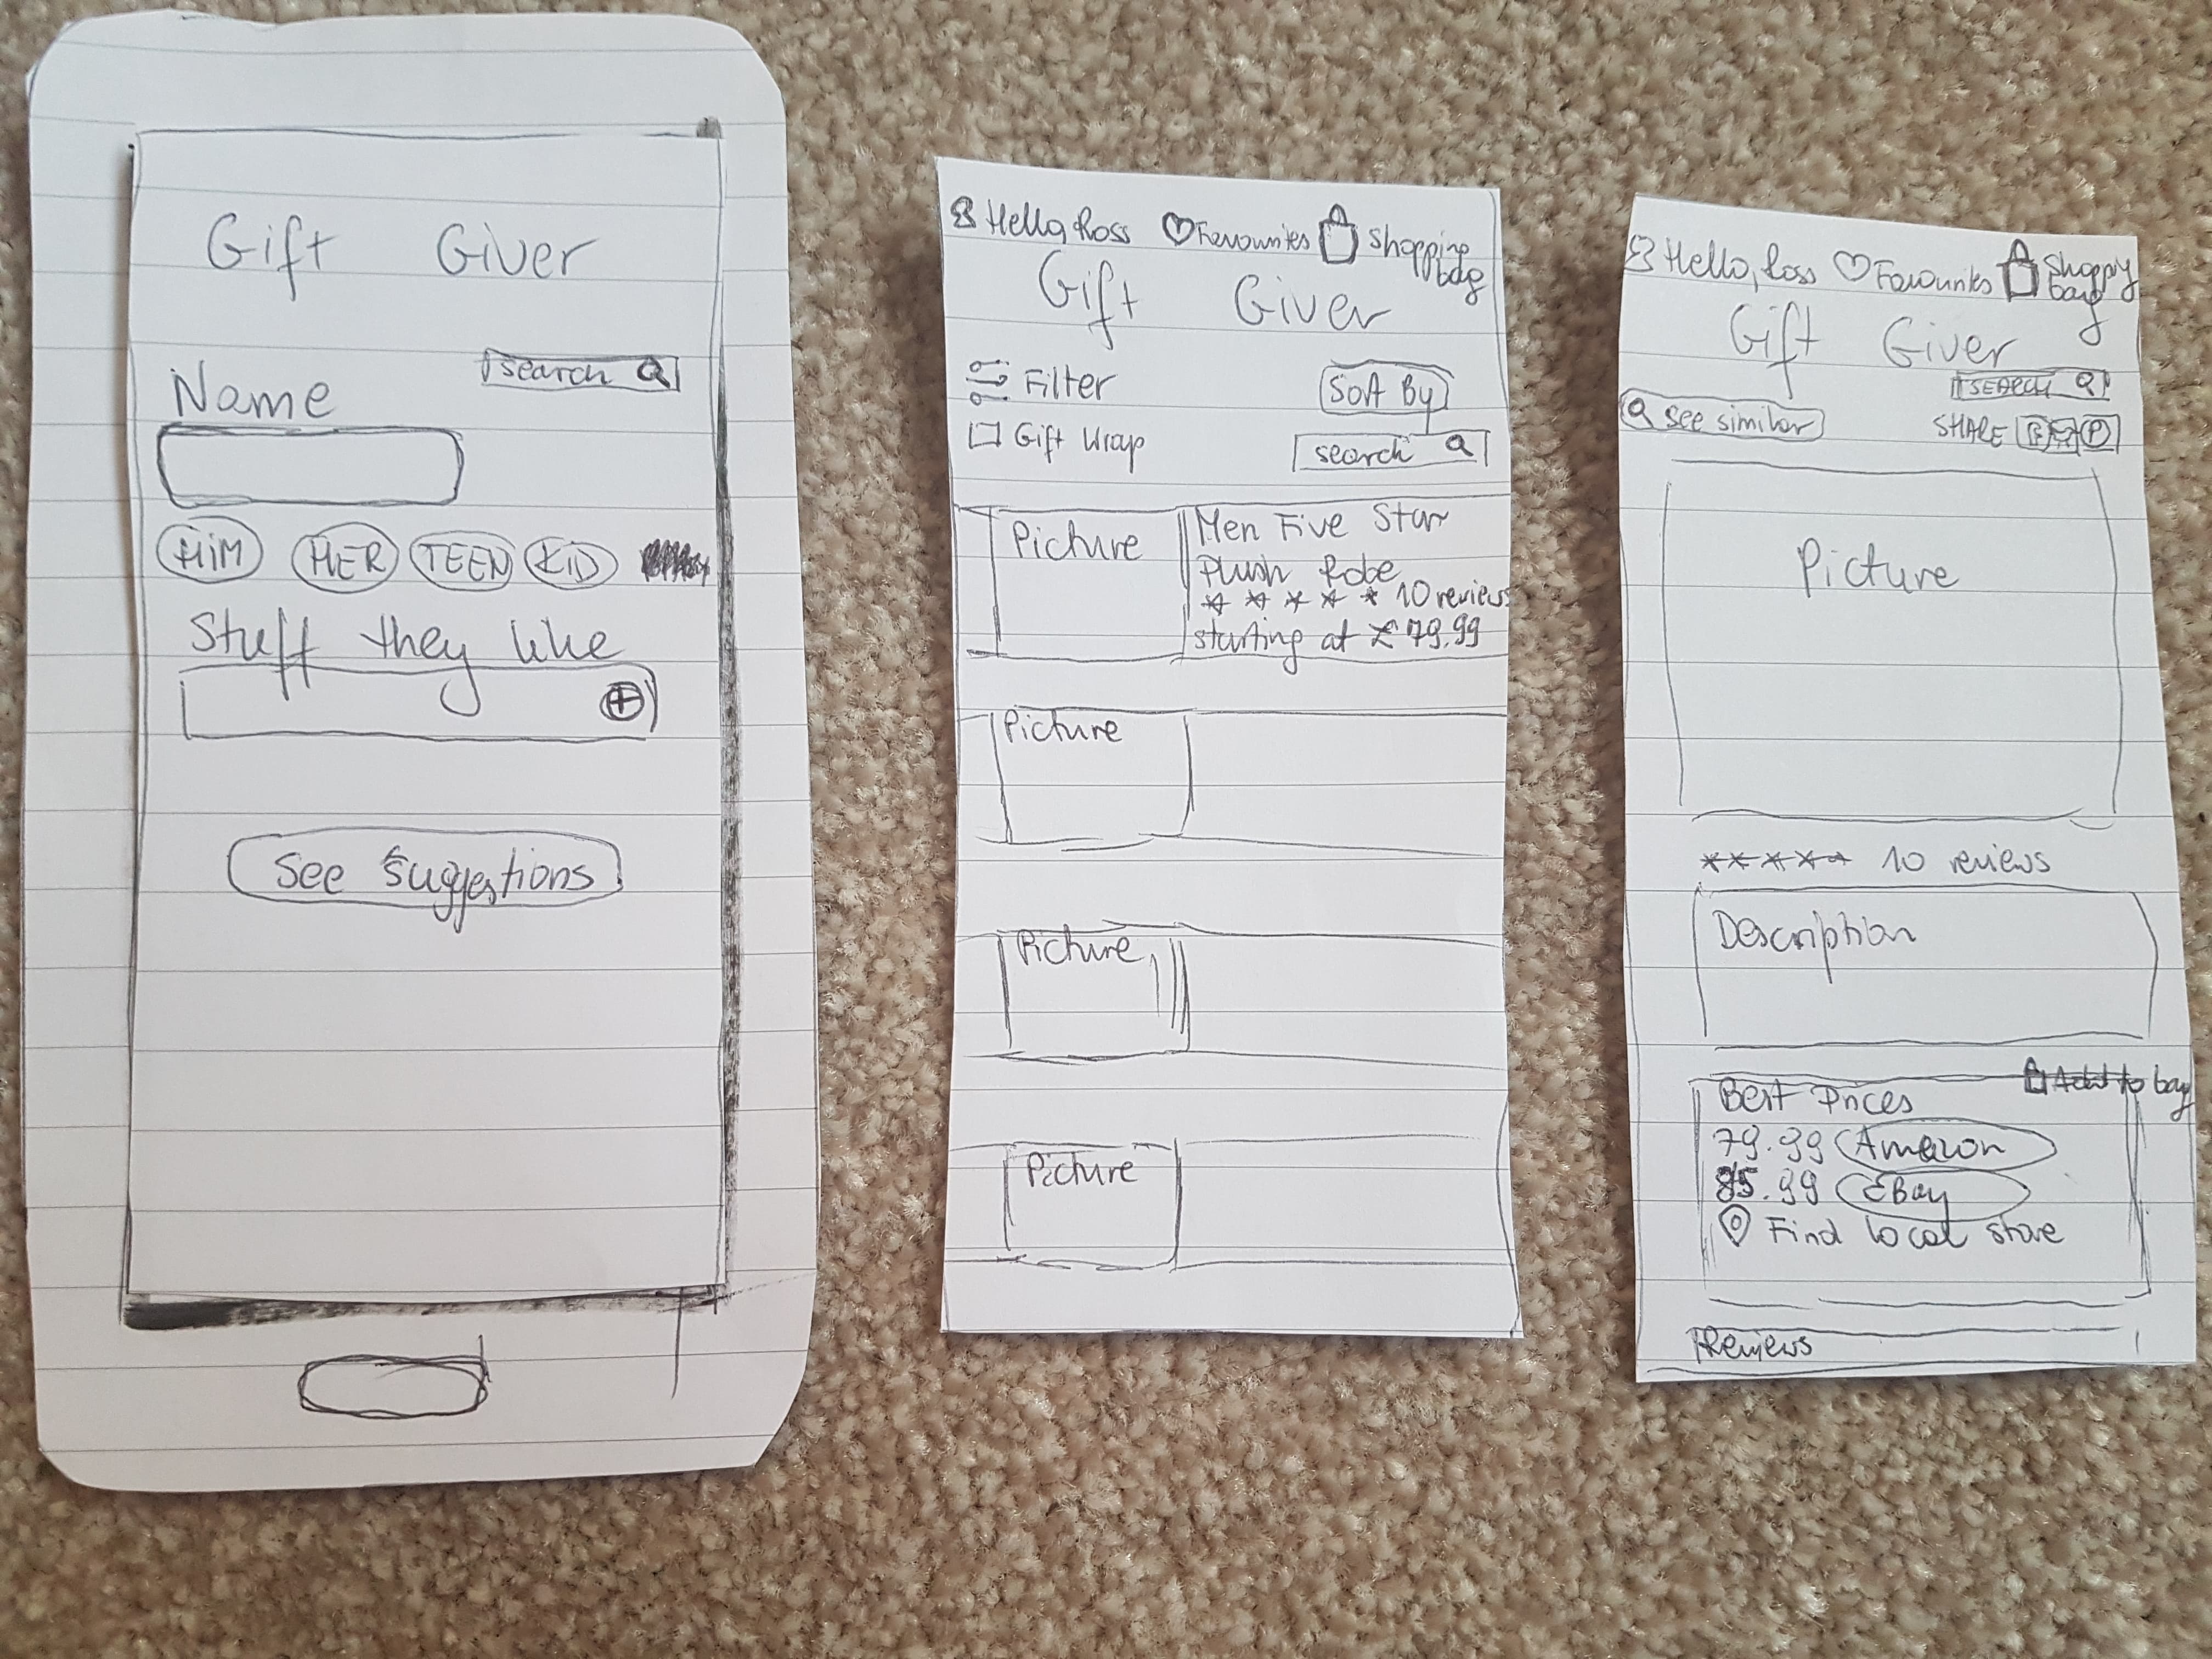 Gift Giver
search
Name
HIM HER TEEN KID
Stuff they like
See Suggestions
Hello, Ross Favourites Shopping bag
Gift Giver
Filter Sort By
Gift Wrap search
Picture
Men Five Star
Plush Robe
10 reviews
starting at £79.99
Picture
Picture
Picture
Hello, Ross Favourites Shoppy bag
Gift Giver
SEARCH
see similar SHARE F P
Picture
10 reviews
Description
Add to bag
Best Prices
79.99 Amazon
85.99 EBay
Find local store
Reviews